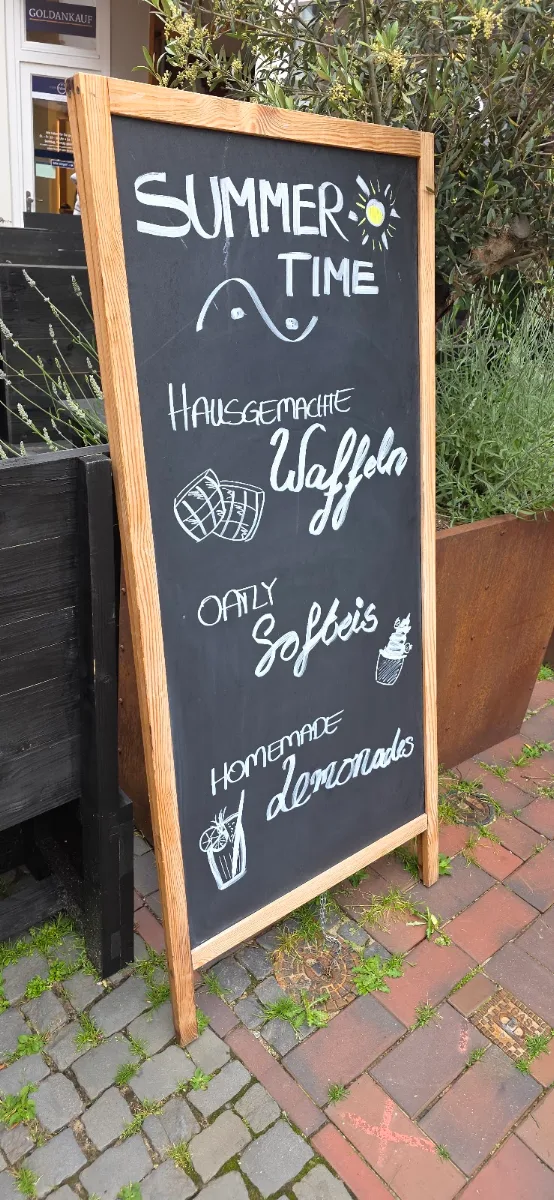 GOLDANKAUF
SUMMER
TIME
HAUSGEMACHTE
Waffeln
OATLY
Softeis
HOMEMADE
Lemonades